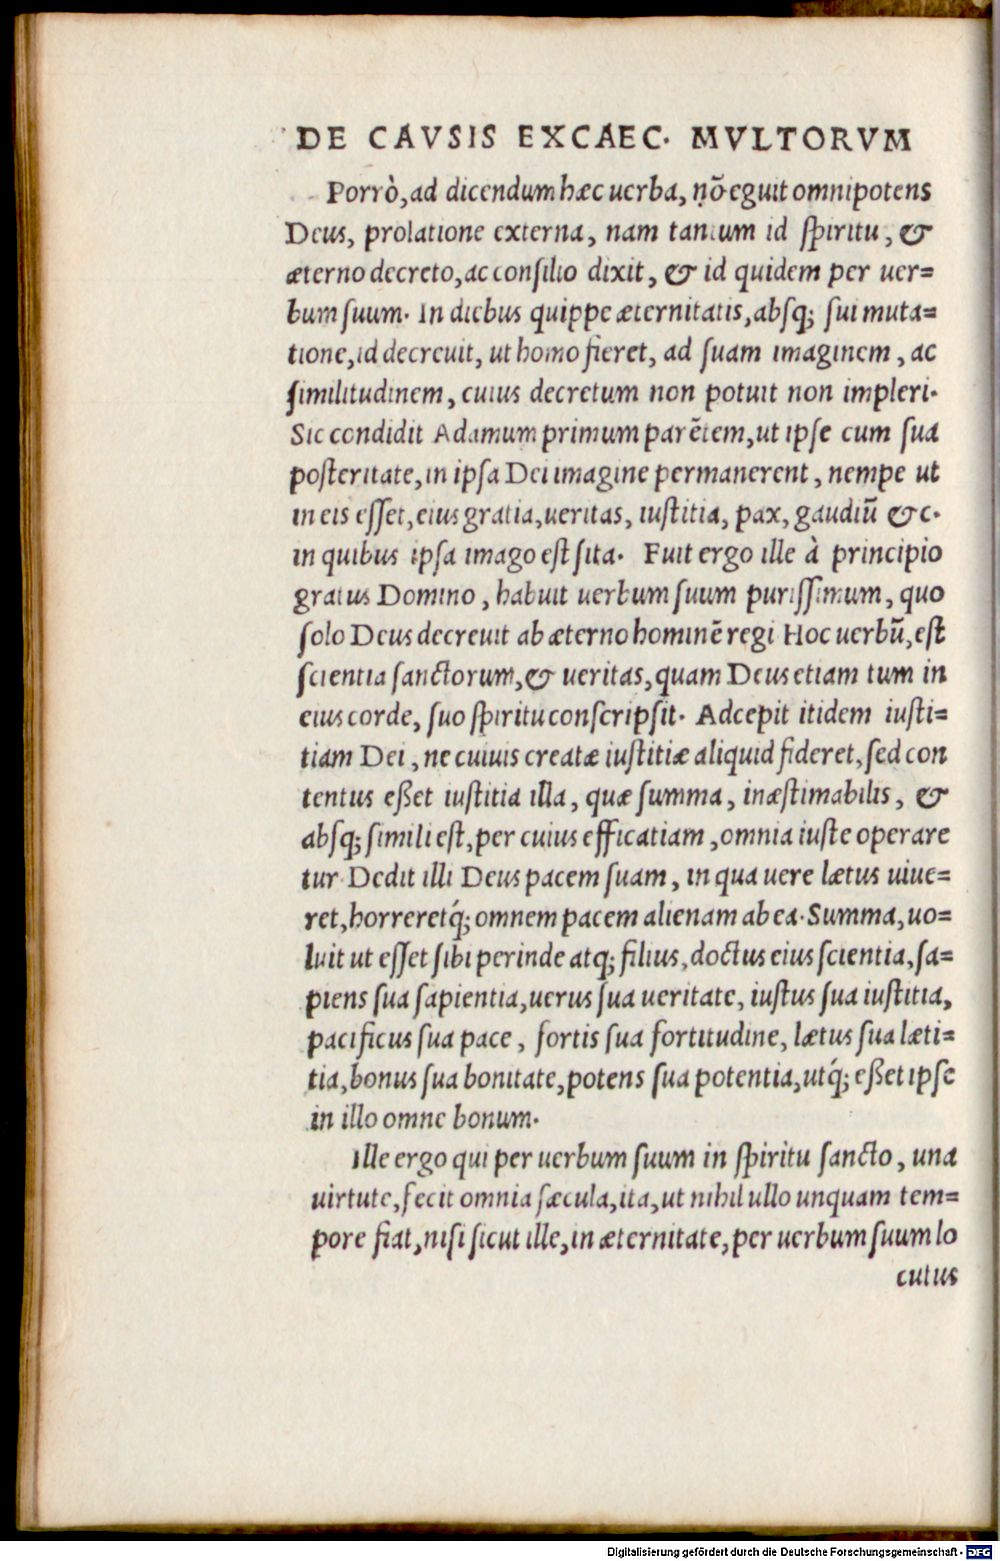 DE CAVSIS EXCAEC. MVLTORVM
Porrò, ad dicendum hæc uerba, nō eguit omnipotens
Deus, prolatione externa, nam tantum id spiritu, &
æterno decreto, ac consilio dixit, & id quidem per uer=
bum suum. In diebus quippe æternitatis, absq; sui muta=
tione, id decreuit, ut homo fieret, ad suam imaginem, ac
similitudinem, cuius decretum non potuit non impleri.
Sic condidit Adamum primum parētem, ut ipse cum sua
posteritate, in ipsa Dei imagine permanerent, nempe ut
in eis esset, eius gratia, ueritas, iustitia, pax, gaudiū &c.
in quibus ipsa imago est sita. Fuit ergo ille à principio
gratus Domino, habuit uerbum suum purissimum, quo
solo Deus decreuit ab æterno hominē regi Hoc uerbū, est
scientia sanctorum, & ueritas, quam Deus etiam tum in
eius corde, suo spiritu conscripsit. Adcepit itidem iusti=
tiam Dei, ne cuiuis creatæ iustitiæ aliquid fideret, sed con
tentus eßet iustitia illa, quæ summa, inæstimabilis, &
absq; simili est, per cuius efficatiam, omnia iuste operare
tur Dedit illi Deus pacem suam, in qua uere lætus uiue=
ret, horreretq́; omnem pacem alienam ab ea. Summa, uo=
luit ut esset sibi perinde atq; filius, doctus eius scientia, sa=
piens sua sapientia, uerus sua ueritate, iustus sua iustitia,
pacificus sua pace, fortis sua fortitudine, lætus sua læti=
tia, bonus sua bonitate, potens sua potentia, utq́; eßet ipse
in illo omne bonum.
Ille ergo qui per uerbum suum in spiritu sancto, una
uirtute, fecit omnia sæcula, ita, ut nihil ullo unquam tem=
pore fiat, nisi sicut ille, in æternitate, per uerbum suum lo
cutus
Digitalisierung gefördert durch die Deutsche Forschungsgemeinschaft - DFG